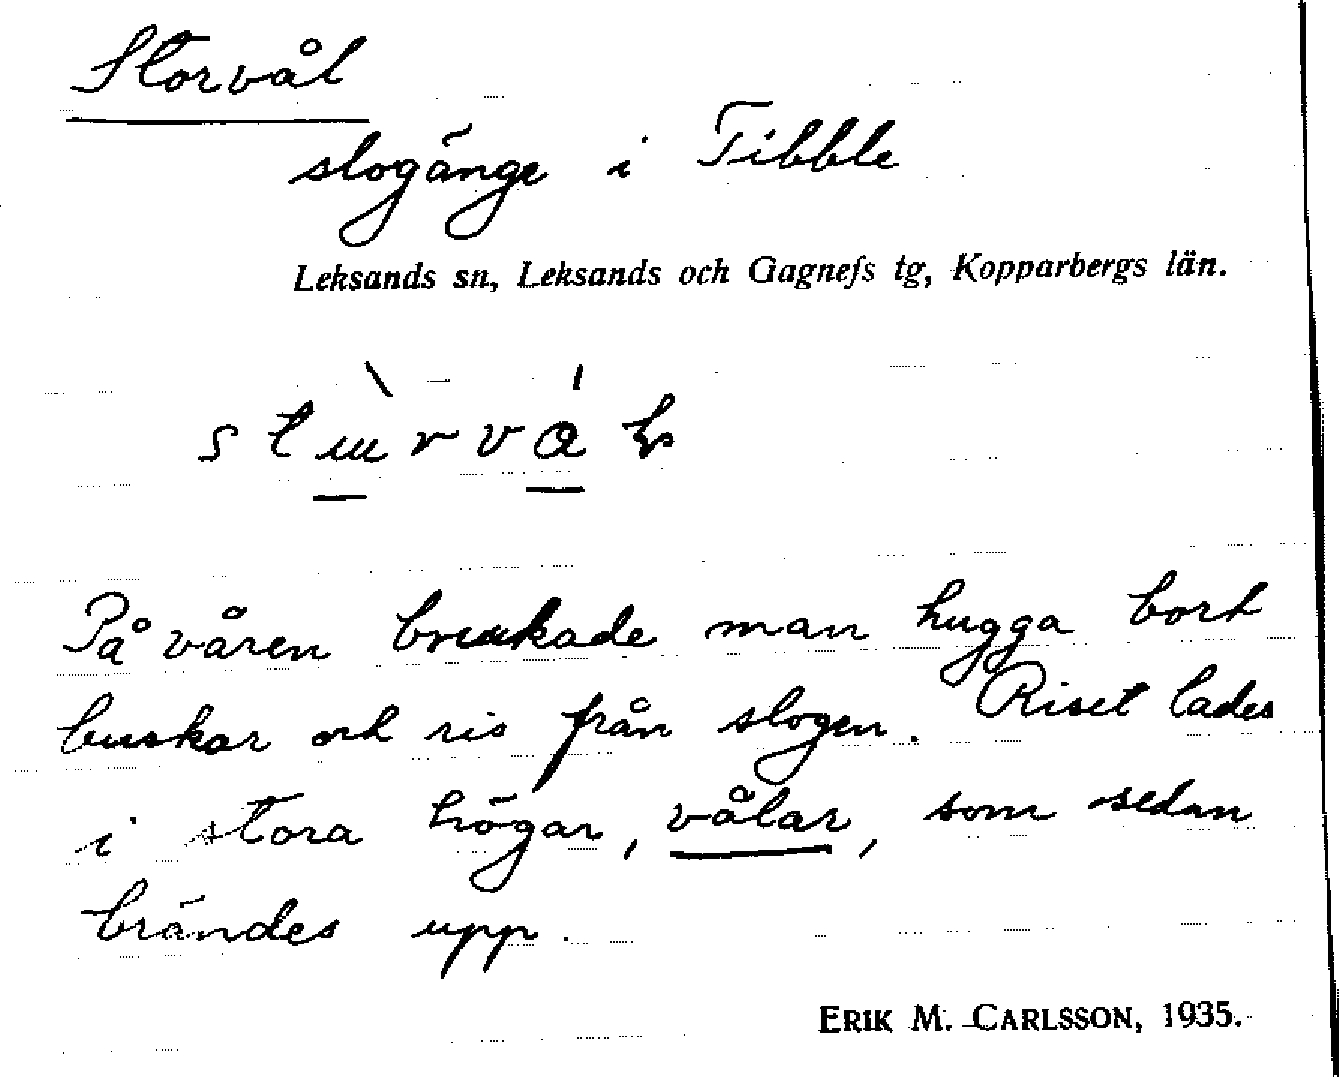 Storvål
slogänge i Tibble
Leksands sn, Leksands och Gagnefs tg, Kopparbergs län.
På våren brukade man hugga bort
buskar och ris från slogen. Riset lades
i stora högar, vålar, som sedan
brändes upp.
ERIK M. CARLSSON, 1935.